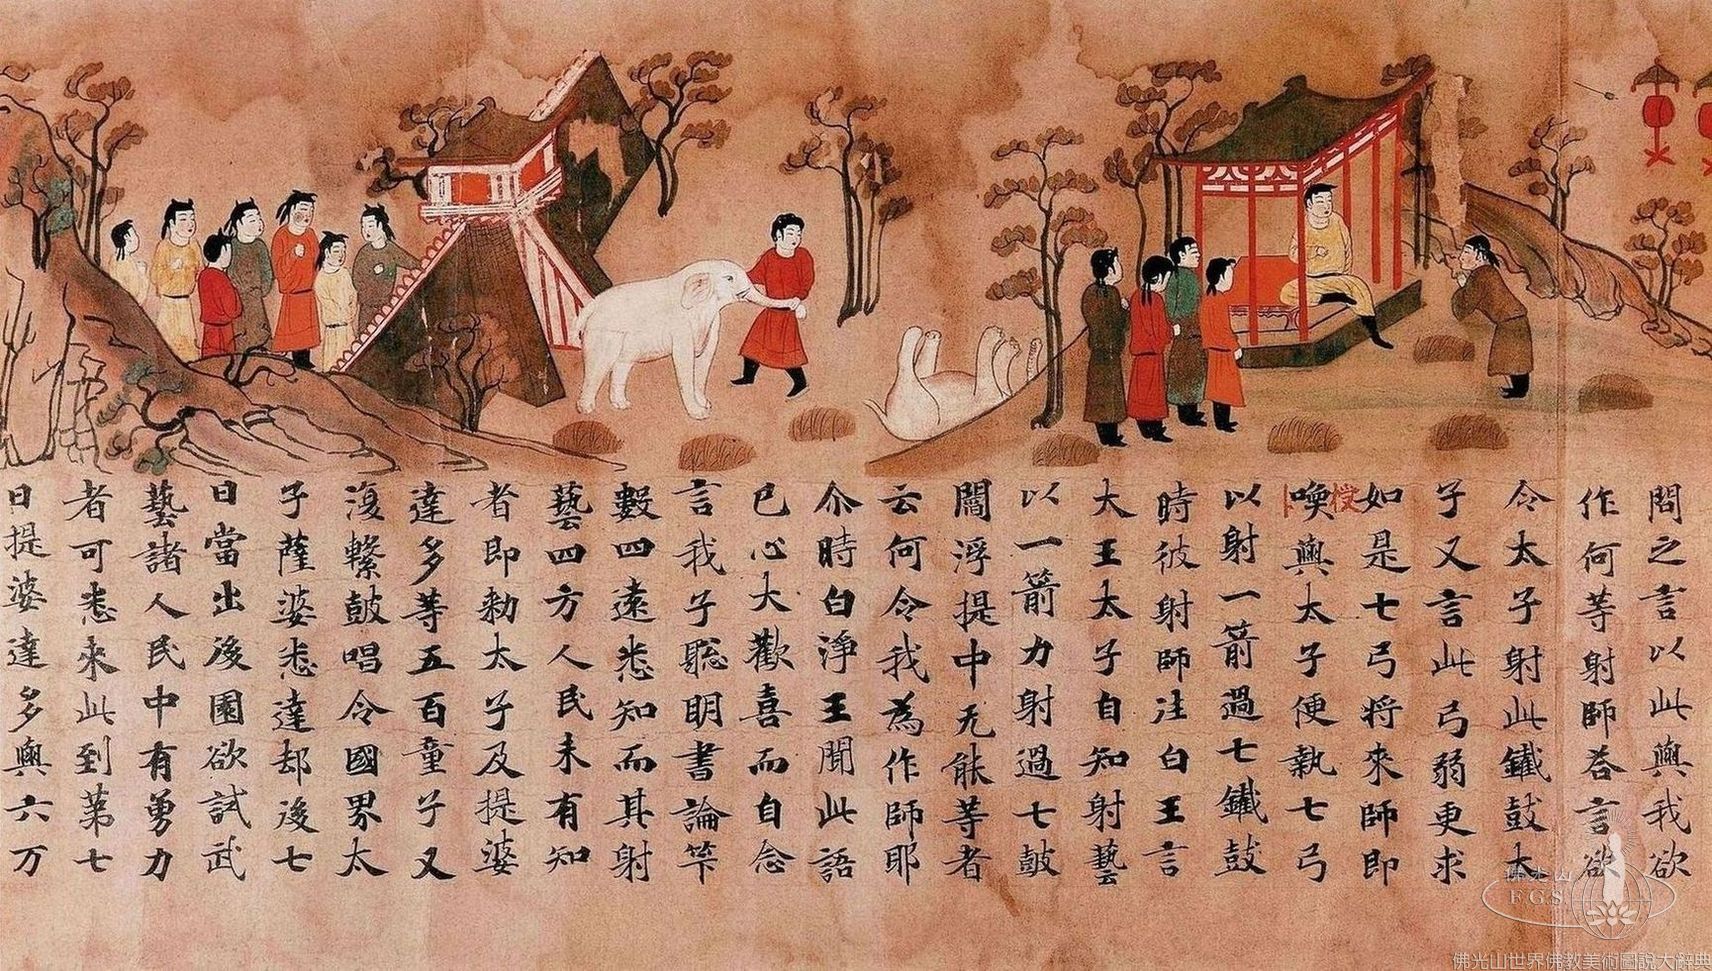 問之言以此與我欲
作何等射師荅言欲
令太子射此鐵鼓太
子又言此弓弱更求
如是七弓将來師即
授
喚與太子便執七弓
以射一箭過七鐵鼓
時彼射師注白王言
大王太子自知射藝
以一箭力射過七鼓
閻浮提中无能等者
云何令我為作師耶
尒時白淨王聞此語
已心大歡喜而自念
言我子聡明書論筭
數四遠悉知而其射
藝四方人民未有知
者即勑太子及提婆
達多等五百童子又
復擊鼓唱令國界太
子薩婆悉達却後七
日當出後園欲試武
藝諸人民中有勇力
者可悉來此到第七
日提婆達多與六万
佛光山
F.G.S.
佛光山世界佛教美術圖說大辭典